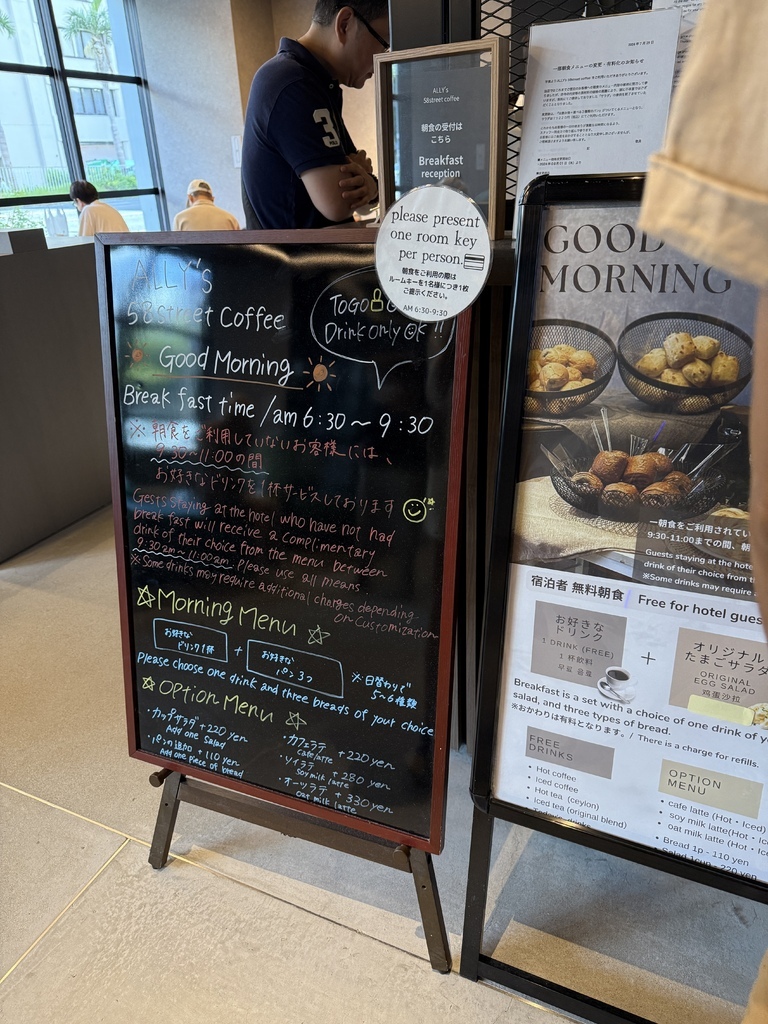 ALLY's
58street coffee
朝食の受付は
こちら
Breakfast
reception
please present
one room key
per person.
朝食をご利用の際は
ルームキーを1名様につき1枚
ご提示ください。
AM 6:30-9:30
ALLY's
58street Coffee
TOGO
Drink only OK !!
Good Morning
Break fast time /am 6:30～9:30
※ 朝食をご利用していないお客様には、
9:30～11:00の間
お好きなドリンクを1杯サービスしております
Gests staying at the hotel who have not had
break fast will receive a complimentary
drink of their choice from the menu between
9:30am～11:00am. Please use all means.
※Some drinks may require additional charges depending
on customization
☆Morning Menu☆
お好きな
ドリンク1杯
+
お好きな
パン3つ
※日替わりで
5～6種類
Please choose one drink and three breads of your choice
☆Option Menu☆
・カップサラダ +220yen
Add one salad
・パンの追加 +110yen
Add one piece of bread
・カフェラテ +220 yen
cafe latte
・ソイラテ +280 yen
Soy milk latte
・オーツラテ +330 yen
oat milk latte
一部朝食メニューの変更・有料化のお知らせ
GOOD
MORNING
一朝食をご利用されてい
9:30-11:00までの間、朝
Guests staying at the hotel
drink of their choice from t
※Some drinks may require
宿泊者 無料朝食 / Free for hotel gues
お好きな
ドリンク
1 DRINK (FREE)
1 杯飲料
무료 음료
+
オリジナル
たまごサラダ
ORIGINAL
EGG SALAD
鸡蛋沙拉
Breakfast is a set with a choice of one drink of yo
salad, and three types of bread.
※おかわりは有料となります。/ There is a charge for refills.
FREE
DRINKS
• Hot coffee
• Iced coffee
• Hot tea (ceylon)
• Iced tea (original blend)
OPTION
MENU
• cafe latte (Hot・Iced)
• soy milk latte(Hot・Ice
• oat milk latte(Hot・Ice
• Bread 1p - 110 yen
• Salad 1cup - 220 yen